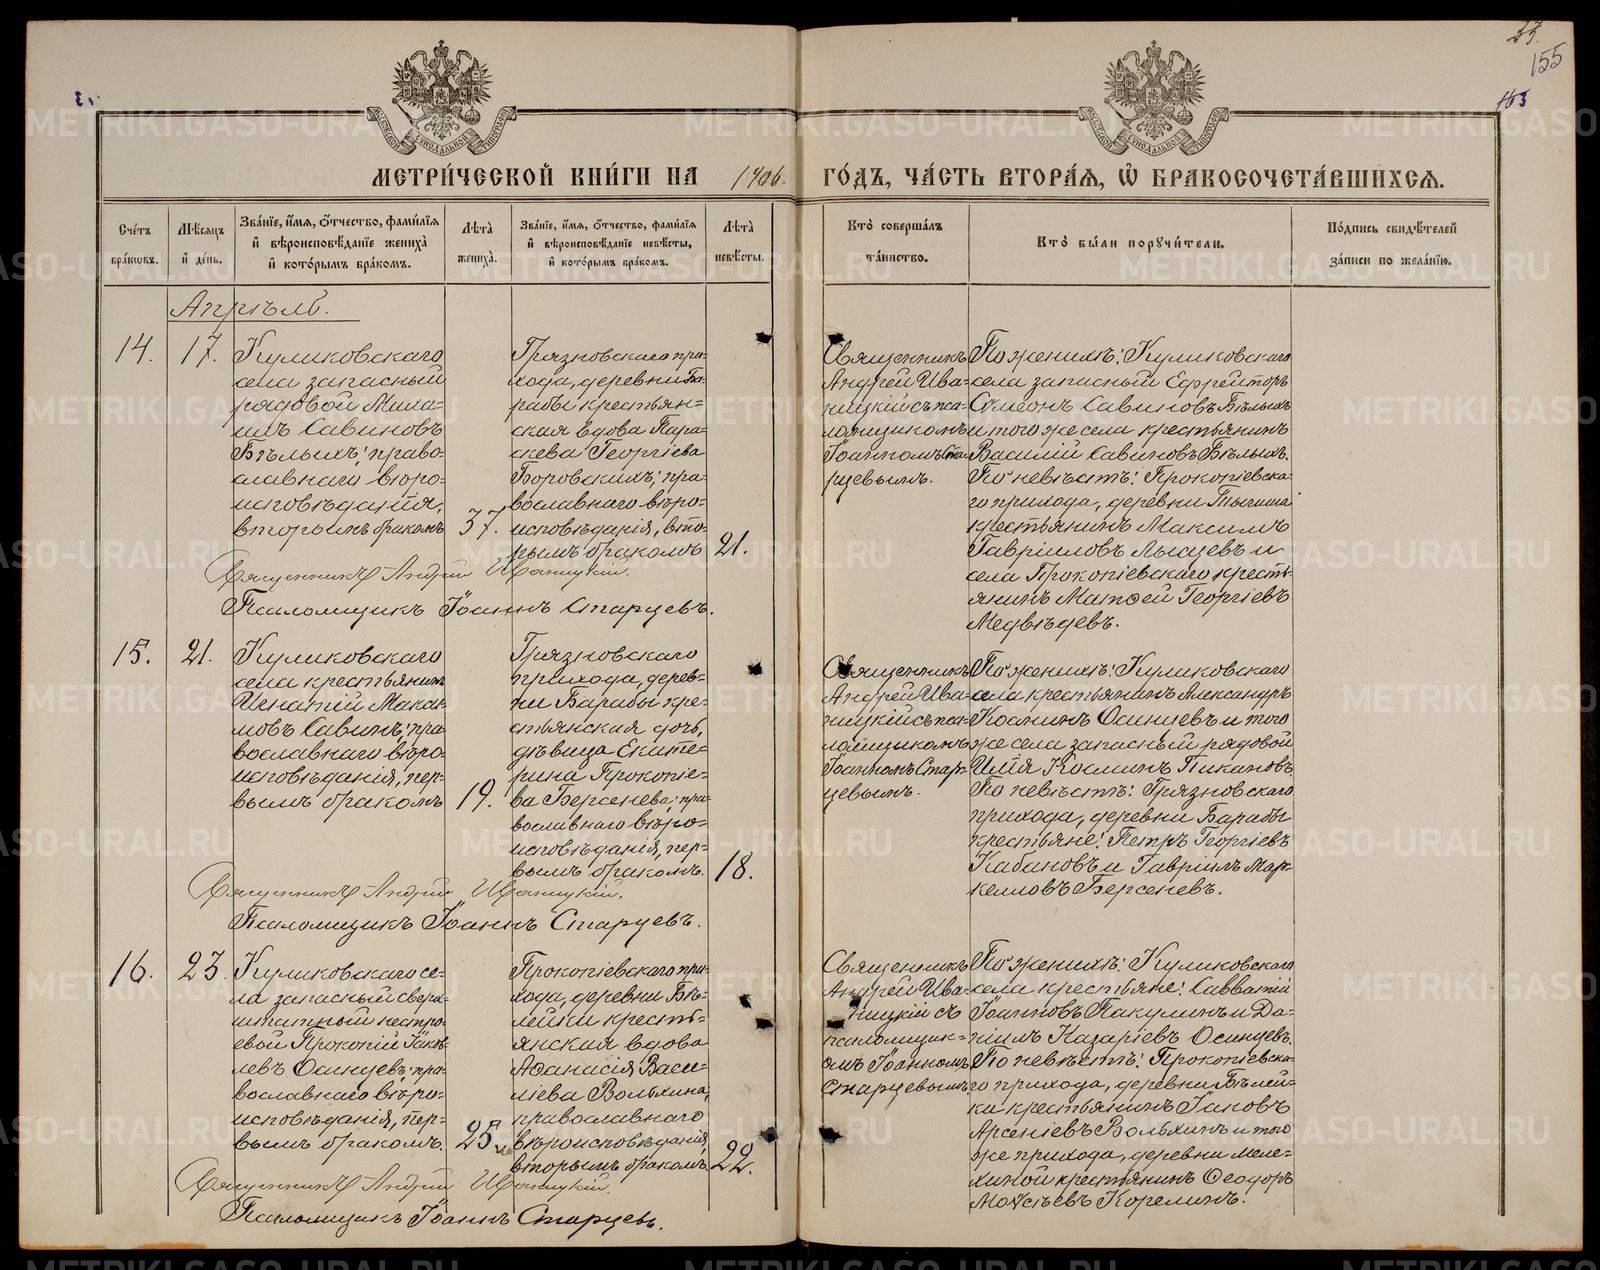 33.
155
155
МЕТРИ́ЧЕСКОЙ КНИ́ГИ НА 1906 ГО́ДЪ, ЧА́СТЬ ВТОРА́Я, Ѽ БРАКОСОЧЕТА́ВШИХСЯ.
Сче́тъ
бра́ковъ.
Мѣ́сяцъ
и҆ де́нь.
Зва́нїе, и҆́мя, ѻ҆́тчество, фами́лїя
и҆ вѣроисповѣ́данїе жениха̀
и҆ кото́рымъ бра́комъ.
Лѣ́та
жениха̀.
Зва́нїе, и҆́мя, ѻ҆́тчество, фами́лїя
и҆ вѣроисповѣ́данїе невѣ́сты,
и҆ кото́рымъ бра́комъ.
Лѣ́та
невѣ́сты.
Кто̀ соверша́лъ
та́инство.
Кто̀ бы́ли порꙋчи́тели.
По́дпись свидѣ́телей
за́писи по жела́нїю.
Апрѣль.
14.
17.
Куликовскаго
села запасный
рядовой Миха-
илъ Савиновъ
Бѣлыхъ; право-
славнаго вѣро-
исповѣданія,
вторымъ бракомъ
37.
Грязновскаго при-
хода, деревни Ба-
рабы крестьян-
ская вдова Пара-
скева Георгіева
Боровскихъ; пра-
вославнаго вѣро-
исповѣданія, вто-
рымъ бракомъ
21.
Священникъ
Андрей Ива-
ницкій съ пса-
ломщикомъ
Іоанномъ Ста-
рцевымъ.
По женихѣ: Куликовскаго
села запасный Ефрейторъ
Сѵмеонъ Савиновъ Бѣлыхъ
и того же села крестьянинъ
Василій Савиновъ Бѣлыхъ.
По невѣстѣ: Прокопіевска-
го прихода, деревни
крестьянинъ Максимъ
Гавріиловъ и
села Прокопіевскаго кресть-
янинъ Матѳей Георгіевъ
Медвѣдевъ.
Священникъ Андрей Иваницкій.
Псаломщикъ Іоаннъ Старцевъ.
15.
21.
Куликовскаго
села крестьянинъ
Игнатій Макси-
мовъ Савинъ; пра-
вославнаго вѣро-
исповѣданія, пер-
вымъ бракомъ
19.
Грязновскаго
прихода, дерев-
ни Барабы кре-
стьянская дочь,
дѣвица Екате-
рина Прокопіе-
ва Берсенева; пра-
вославнаго вѣро-
исповѣданія, пер-
вымъ бракомъ.
18.
Священникъ
Андрей Ива-
ницкій съ пса-
ломщикомъ
Іоанномъ Стар-
цевымъ.
По женихѣ: Куликовскаго
села крестьянинъ Александръ
Осинцевъ и того
же села запасный рядовой
Илія Косминъ Пикановъ.
По невѣстѣ: Грязновскаго
прихода, деревни Барабы
крестьяне: Петръ Георгіевъ
Кабановъ и Гавріилъ Мар-
келловъ Берсеневъ.
Священникъ Андрей Иваницкій.
Псаломщикъ Іоаннъ Старцевъ.
16.
23.
Куликовскаго се-
ла запасный сверх-
штатный нестро-
евой Прокопій Іаков-
левъ Осинцевъ; пра-
вославнаго вѣро-
исповѣданія, пер-
вымъ бракомъ.
25
Прокопіевскаго при-
хода, деревни Бѣ-
лейки кресть-
янская вдова
Аѳанасія Васи-
ліева Вольхина,
православнаго
вѣроисповѣданія,
вторымъ бракомъ.
22.
Священникъ
Андрей Ива-
ницкій съ
псаломщик-
омъ Іоанномъ
Старцевымъ.
По женихѣ: Куликовскаго
села крестьяне: Савватій
Іоанновъ Пакулинъ и Да-
ніилъ Назаріевъ Осинцевъ.
По невѣстѣ: Прокопіевска-
го прихода, деревни Бѣлей-
ки крестьянинъ Іаковъ
Арсеніевъ Вольхинъ и того
же прихода, деревни Меле-
хиной крестьянинъ Ѳеодоръ
Моѵсіевъ Корелинъ.
Священникъ Андрей Иваницкій.
Псаломщикъ Іоаннъ Старцевъ.